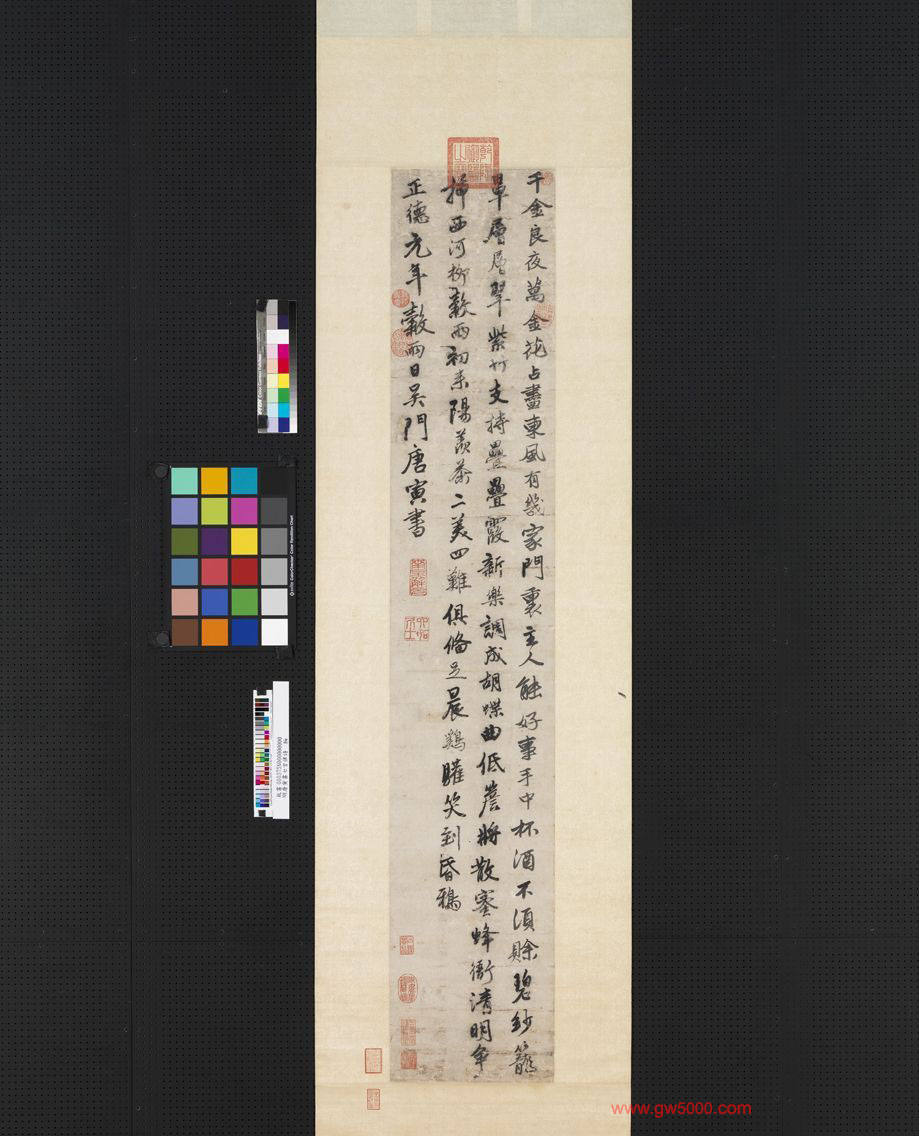 千金良夜萬金花占盡東風有幾家門裏主人能好事手中杯酒不須賒碧紗籠
罩層層翠紫竹支持疊疊霞新樂調成胡蝶曲低簷將散蜜蜂衙清明爭
插西河柳穀雨初來陽羨茶二美四難俱備足晨鷄嚾笑到昏鴉
正德元年穀雨日吳門唐寅書
www.gw5000.com